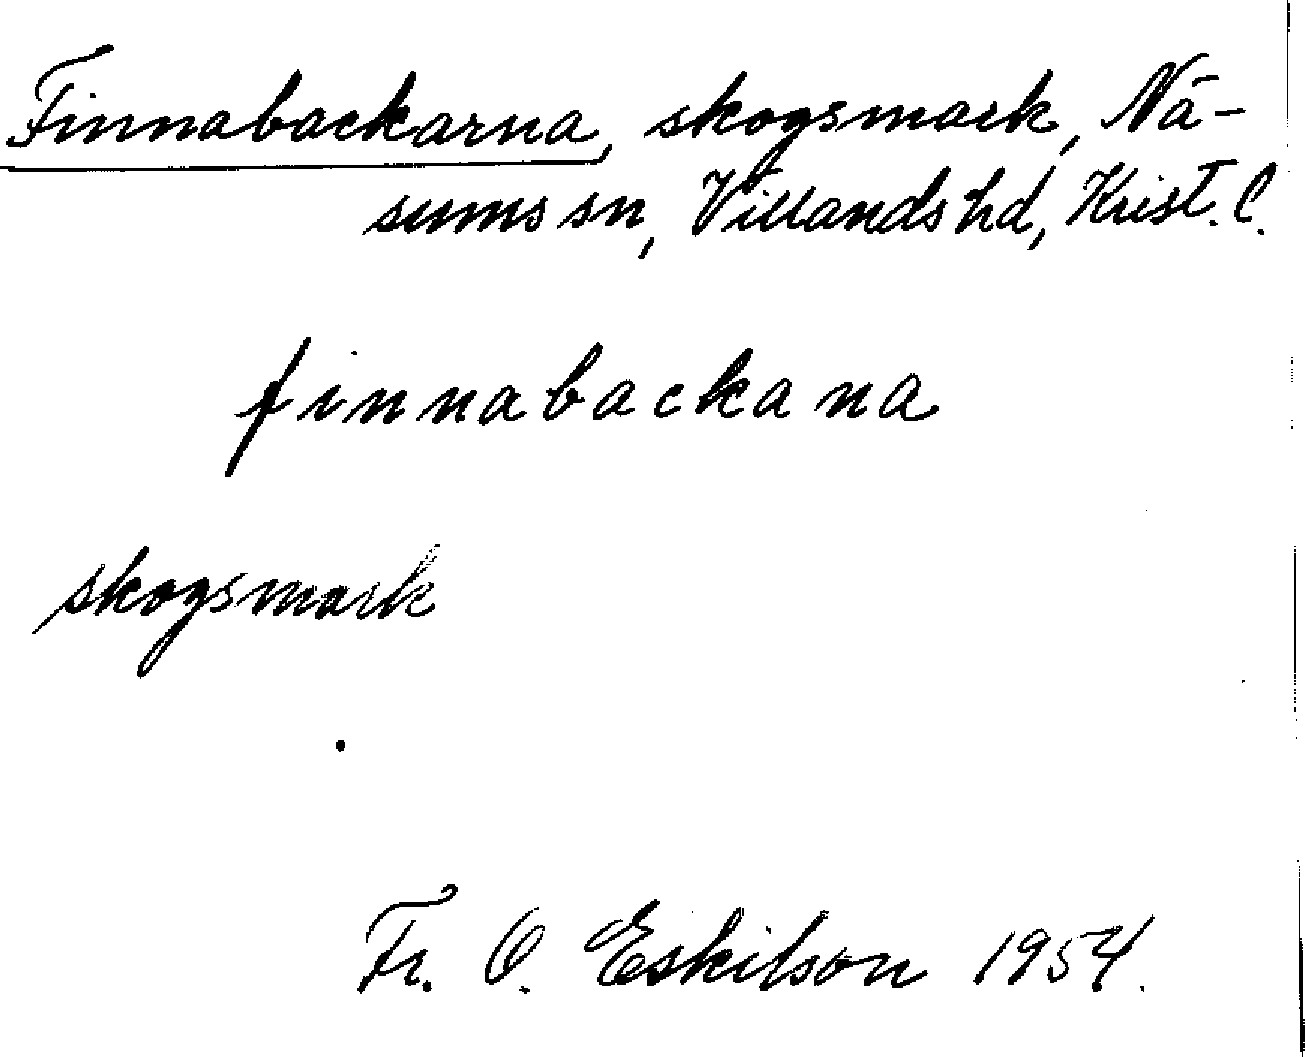 Finnabackarna, skogsmark, Nä-
sums sn, Villands hd, Krist. l.
finnabackana
skogsmark
Fr. O. Eskilson 1954.